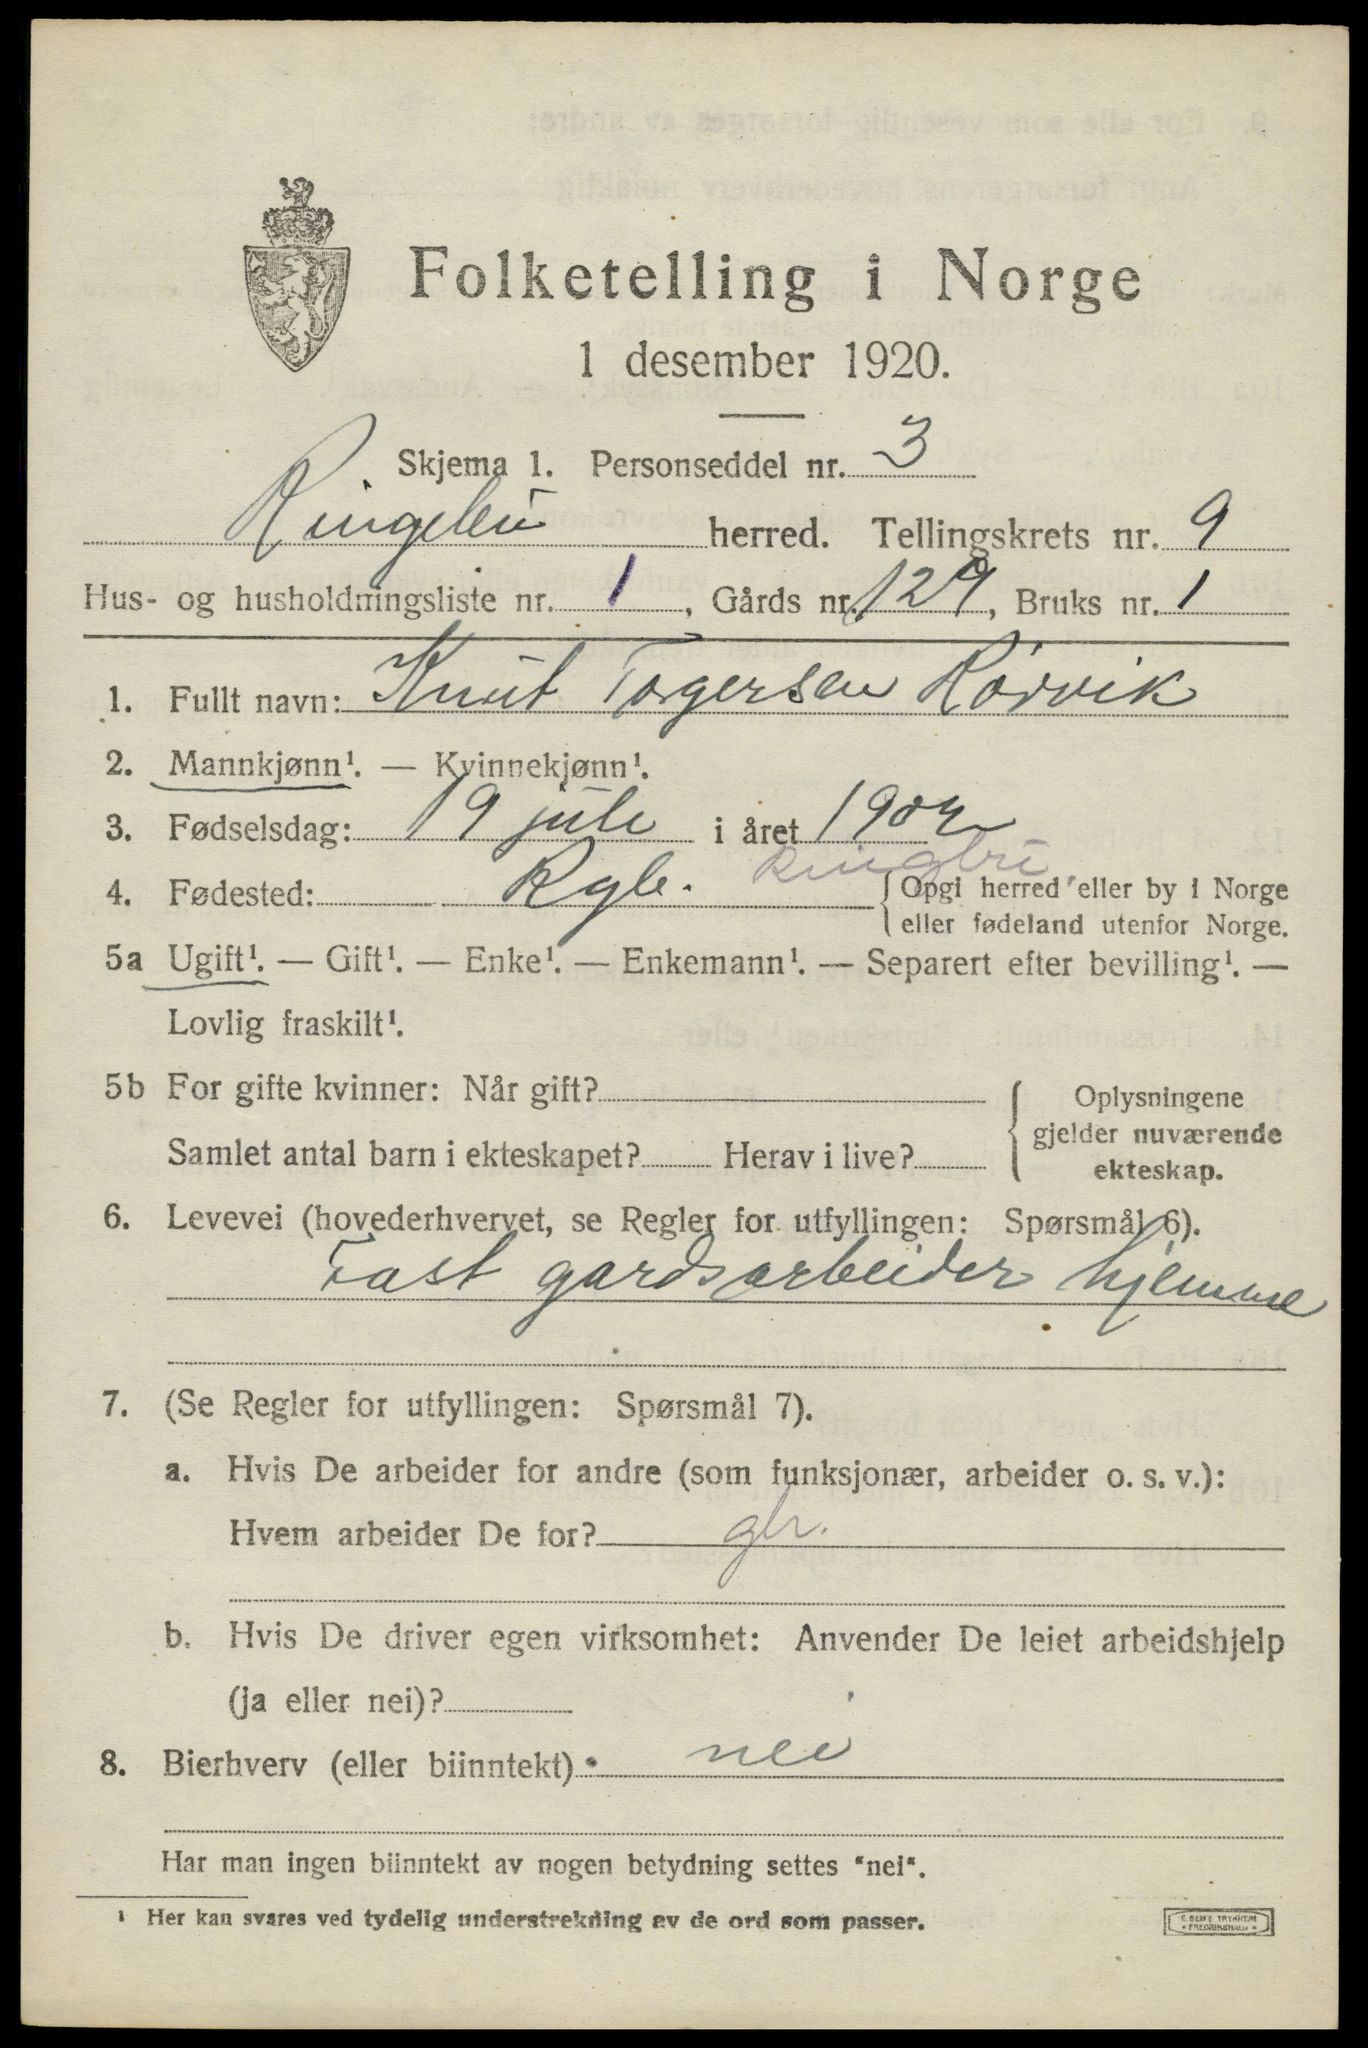 Folketelling i Norge
1 desember 1920.
Skjema 1. Personseddel nr. 3
Ringebu herred. Tellingskrets nr. 9
Hus- og husholdningsliste nr. 1, Gårds nr. 129, Bruks nr. 1
1. Fullt navn: Knut Torgersen Rørvik
2. Mannkjønn¹. — Kvinnekjønn¹.
3. Fødselsdag: 19 juli i året 1904
4. Fødested: Rgb. Ringebu { Opgi herred eller by i Norge
eller fødeland utenfor Norge.
5a Ugift¹. — Gift¹. — Enke¹. — Enkemann¹. — Separert efter bevilling¹. —
Lovlig fraskilt¹.
5b For gifte kvinner: Når gift? { Oplysningene
gjelder nuværende
Samlet antal barn i ekteskapet? Herav i live? ekteskap.
6. Levevei (hovederhvervet, se Regler for utfyllingen: Spørsmål 6).
Fast gardsarbeider hjemme
7. (Se Regler for utfyllingen: Spørsmål 7).
a. Hvis De arbeider for andre (som funksjonær, arbeider o. s. v.):
Hvem arbeider De for? gbr.
b. Hvis De driver egen virksomhet: Anvender De leiet arbeidshjelp
(ja eller nei)?
8. Bierhverv (eller biinntekt) nei
Har man ingen biinntekt av nogen betydning settes "nei".
¹ Her kan svares ved tydelig understrekning av de ord som passer.
E. SEM'S TRYKKERI
FREDRIKSHALD